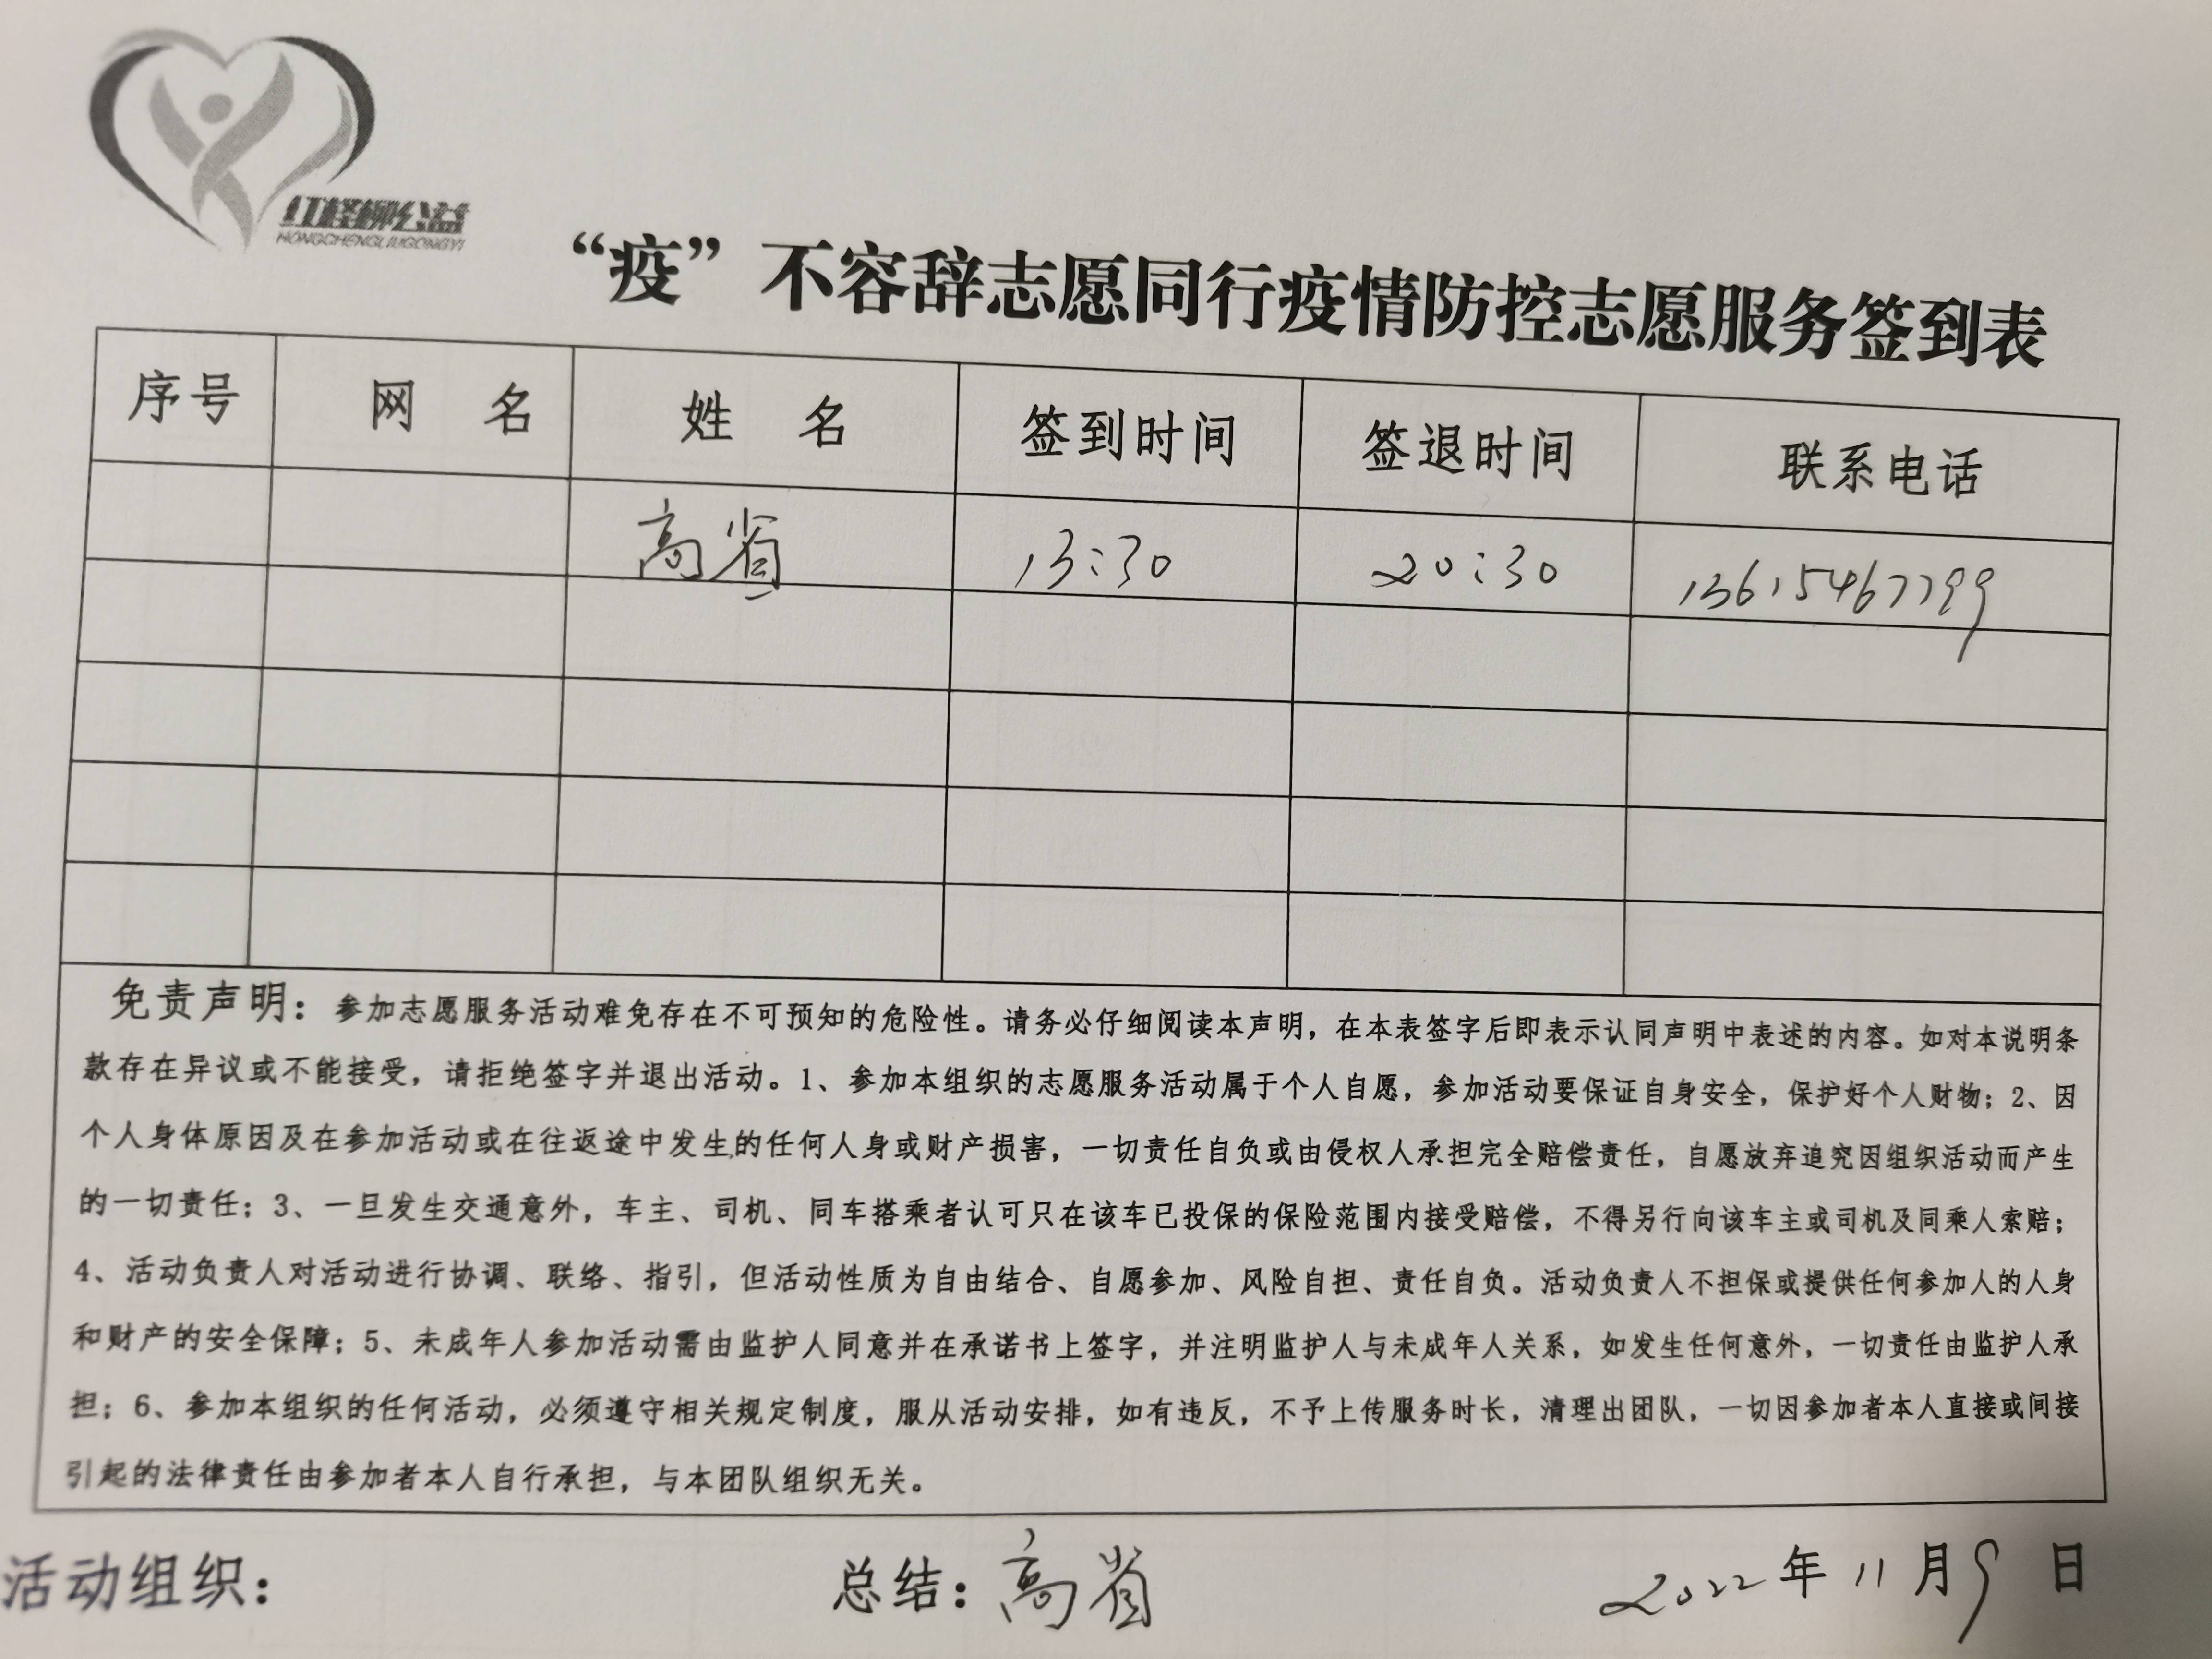 红柽柳公益
HONGCHENGLIUGONGYI
“疫”不容辞志愿同行疫情防控志愿服务签到表
序号 网 名 姓 名 签到时间 签退时间 联系电话
高省 13:30 20:30 13615467799
免责声明：参加志愿服务活动难免存在不可预知的危险性。请务必仔细阅读本声明，在本表签字后即表示认同声明中表述的内容。如对本说明条
款存在异议或不能接受，请拒绝签字并退出活动。1、参加本组织的志愿服务活动属于个人自愿，参加活动要保证自身安全，保护好个人财物；2、因
个人身体原因及在参加活动或在往返途中发生的任何人身或财产损害，一切责任自负或由侵权人承担完全赔偿责任，自愿放弃追究因组织活动而产生
的一切责任；3、一旦发生交通意外，车主、司机、同车搭乘者认可只在该车已投保的保险范围内接受赔偿，不得另行向该车主或司机及同乘人索赔；
4、活动负责人对活动进行协调、联络、指引，但活动性质为自由结合、自愿参加、风险自担、责任自负。活动负责人不担保或提供任何参加人的人身
和财产的安全保障；5、未成年人参加活动需由监护人同意并在承诺书上签字，并注明监护人与未成年人关系，如发生任何意外，一切责任由监护人承
担；6、参加本组织的任何活动，必须遵守相关规定制度，服从活动安排，如有违反，不予上传服务时长，清理出团队，一切因参加者本人直接或间接
引起的法律责任由参加者本人自行承担，与本团队组织无关。
活动组织： 总结：高省 2022年11月9日